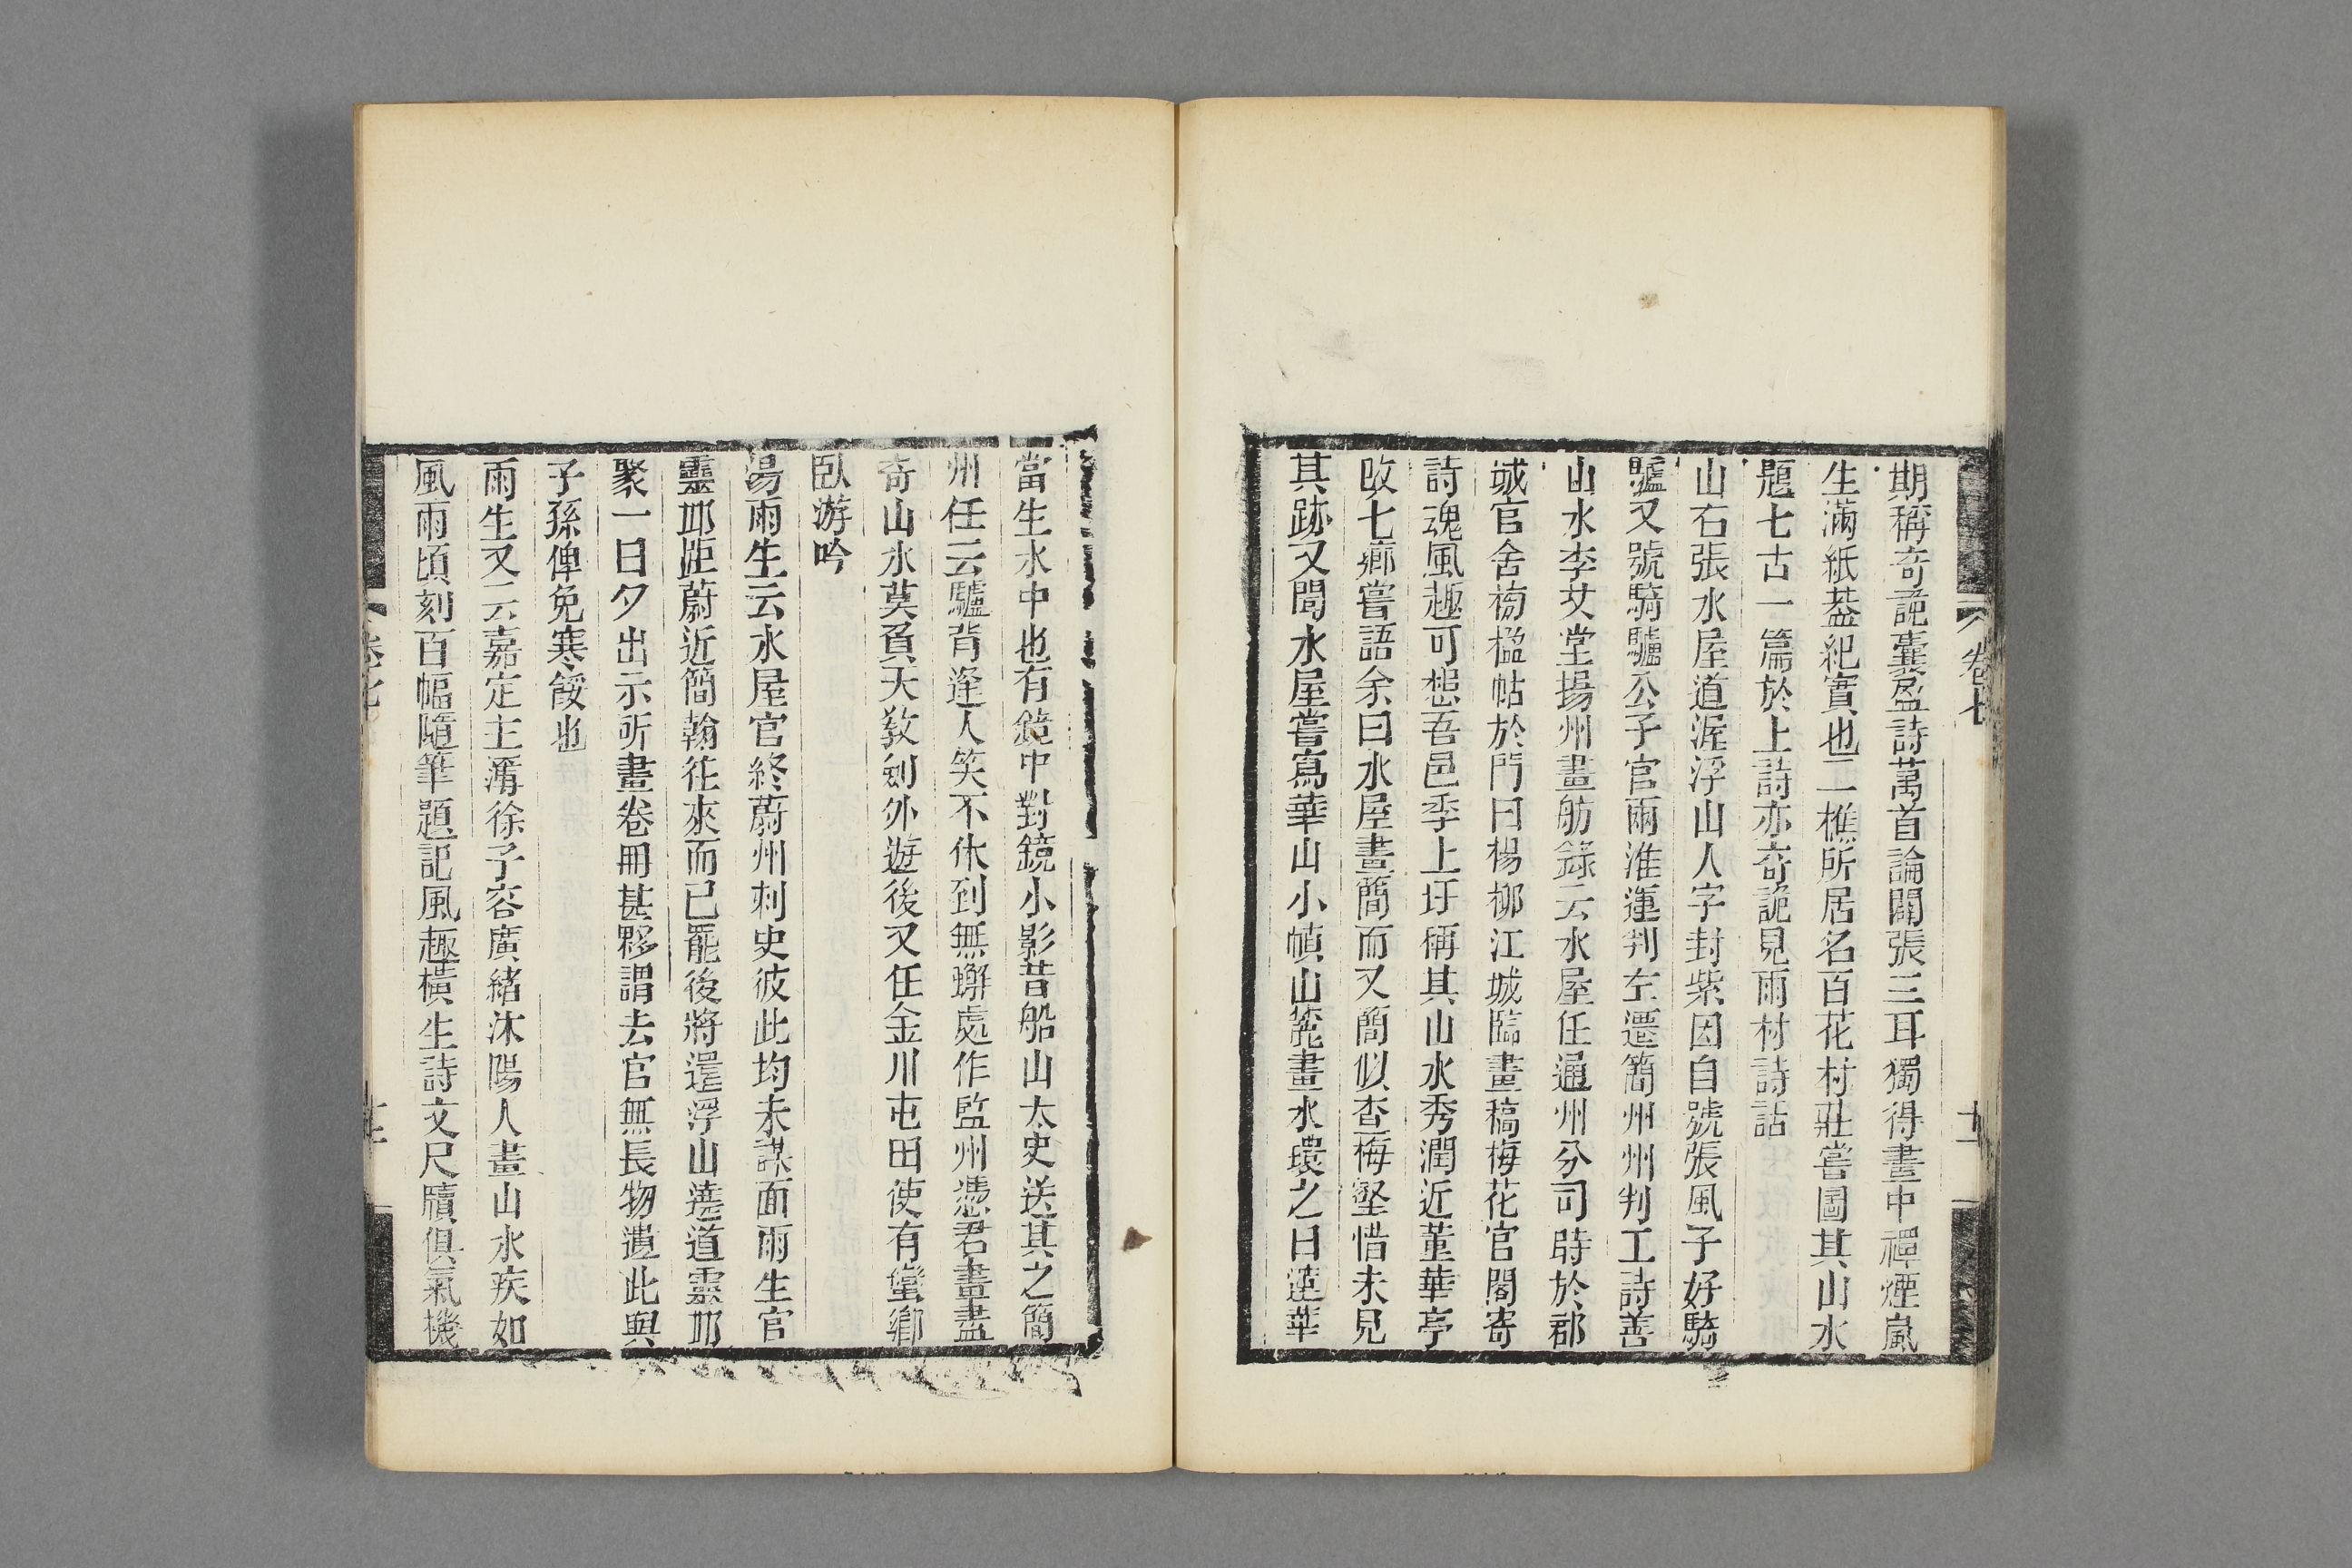 期稱奇詭囊盈詩萬首論闢張三耳獨得畫中禪煙嵐
生滿紙葢紀實也二樵所居名百花村莊嘗圖其山水
題七古一篇於上詩亦奇詭見雨村詩話
山右張水屋道渥浮山人字封紫因自號張風子好騎
驢又號騎驢公子官兩淮運判左遷簡州州判工詩善
山水李艾堂揚州畫舫錄云水屋任通州分司時於郡
城官舍楹帖於門曰楊柳江城臨畫稿梅花官閣寄
詩魂風趣可想吾邑季上圩稱其山水秀潤近董華亭
改七薌嘗語余曰水屋畫簡而又簡似查梅壑惜未見
其跡又聞水屋嘗寫華山小幀山籠畫水環之曰蓮華
卷七
當生水中也有鏡中對鏡小影昔船山太史送其之簡
州任云驢背逢人笑不休到無蠏處作監州憑君畫盡
奇山水莫負天教劍外遊後又任金川屯田使有蠻鄉
臥游吟
湯雨生云水屋官終蔚州刺史彼此均未謀面雨生官
靈邱距蔚近簡翰往來而已罷後將還浮山遶道靈邱
聚一日夕出示所畫卷冊甚夥謂去官無長物遺此與
子孫俾免寒餒也
雨生又云嘉定主簿徐子容廣緒沐陽人畫山水疾如
風雨頃刻百幅隨筆題記風趣橫生詩文尺牘俱氣機
卷七